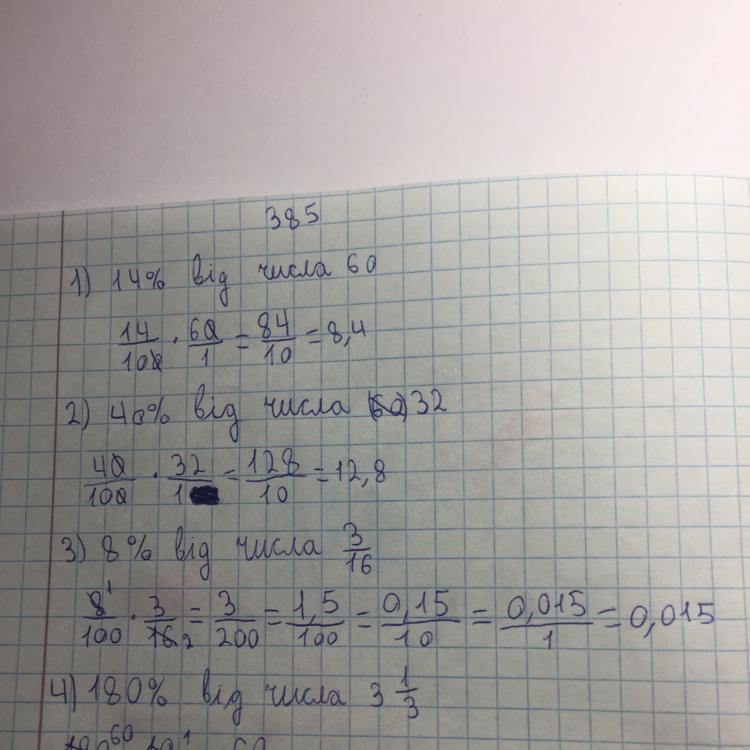 385
1) 14% від числа 60
14/100 · 60/1 = 84/10 = 8,4
2) 40% від числа (60) 32
40/100 · 32/1 = 128/10 = 12,8
3) 8% від числа 3/16
8 1/100 · 3/16 2 = 3/200 = 1,5/100 = 0,15/10 = 0,015/1 = 0,015
4) 180% від числа 3 1/3